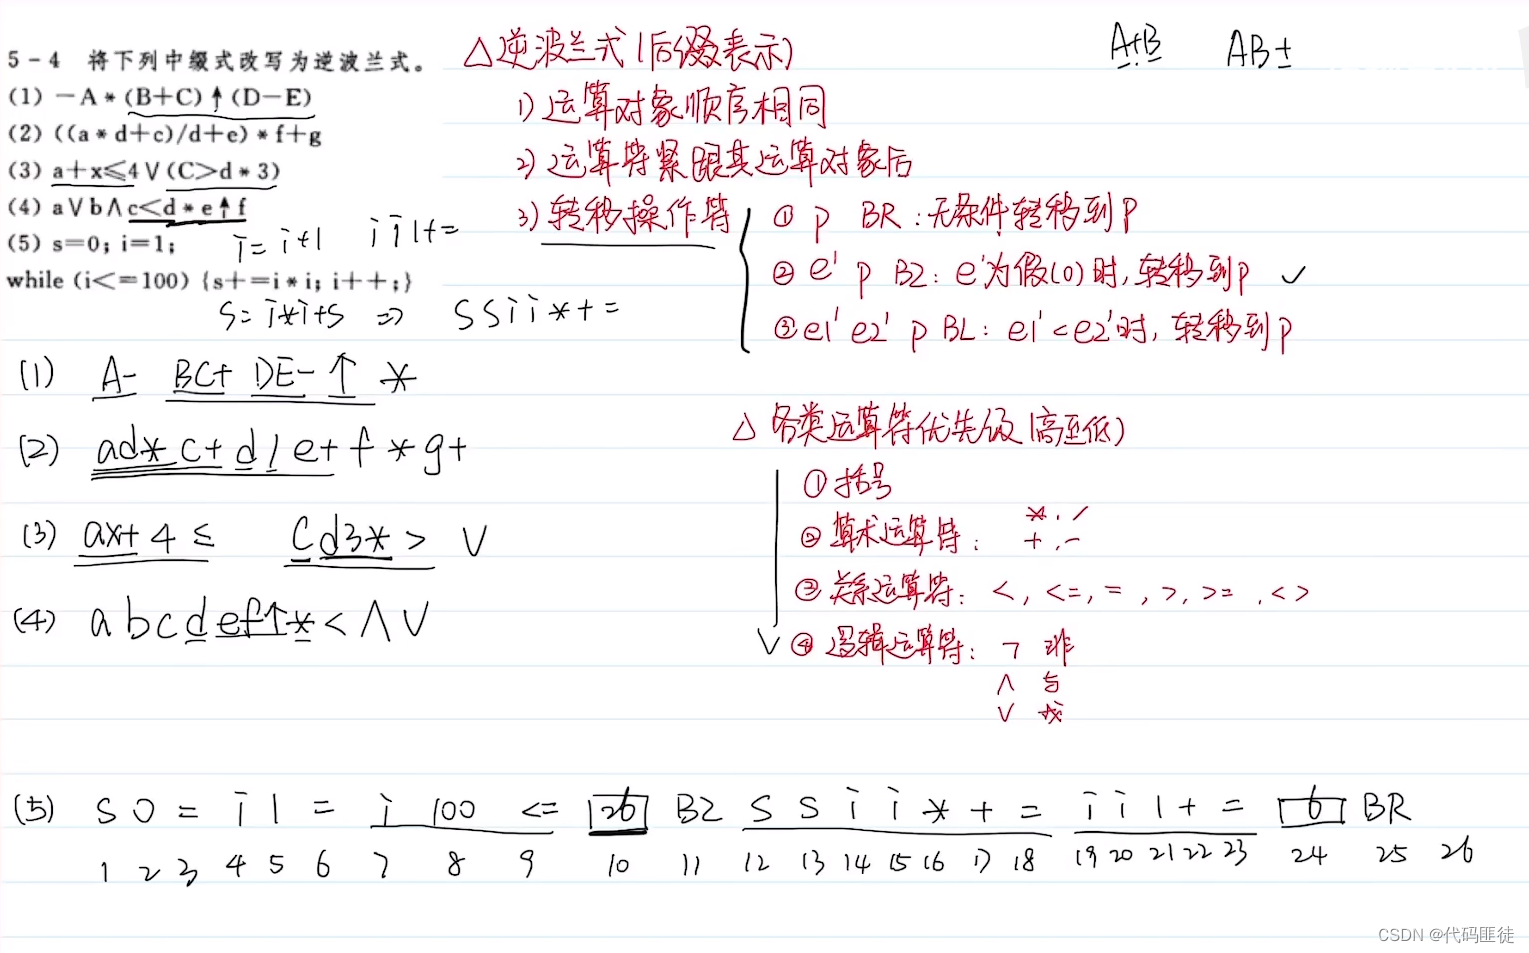 5-4 将下列中缀式改写为逆波兰式。
(1) -A*(B+C)↑(D-E)
(2) ((a*d+c)/d+e)*f+g
(3) a+x≤4∨(C>d*3)
(4) a∨b∧c<d*e↑f
(5) s=0; i=1;
while (i<=100) {s+=i*i; i++;}
i=i+1 i i 1+=
S=i*i+S ⇒ S S i i * + =
△逆波兰式(后缀表示)
A+B AB+
1) 运算对象顺序相同
2) 运算符紧跟其运算对象后
3) 转移操作符
① P BR:无条件转移到P
② e' P BZ: e'为假(0)时,转移到P ✓
③ e1' e2' P BL: e1'<e2'时,转移到P
(1) A- BC+ DE- ↑ *
(2) ad* c+ d / e+ f * g+
(3) ax+ 4 ≤ C d3* > ∨
(4) a b c d e f ↑ * < ∧ ∨
△ 各类运算符优先级(高至低)
① 括号
② 算术运算符: *, / +, -
③ 关系运算符: <, <=, =, >, >=, <>
④ 逻辑运算符: ¬ 非
∧ 与
∨ 或
(5) S 0 = i 1 = i 100 <= 26 BZ S S i i * + = i i 1 + = 6 BR
1 2 3 4 5 6 7 8 9 10 11 12 13 14 15 16 17 18 19 20 21 22 23 24 25 26
CSDN @代码匪徒